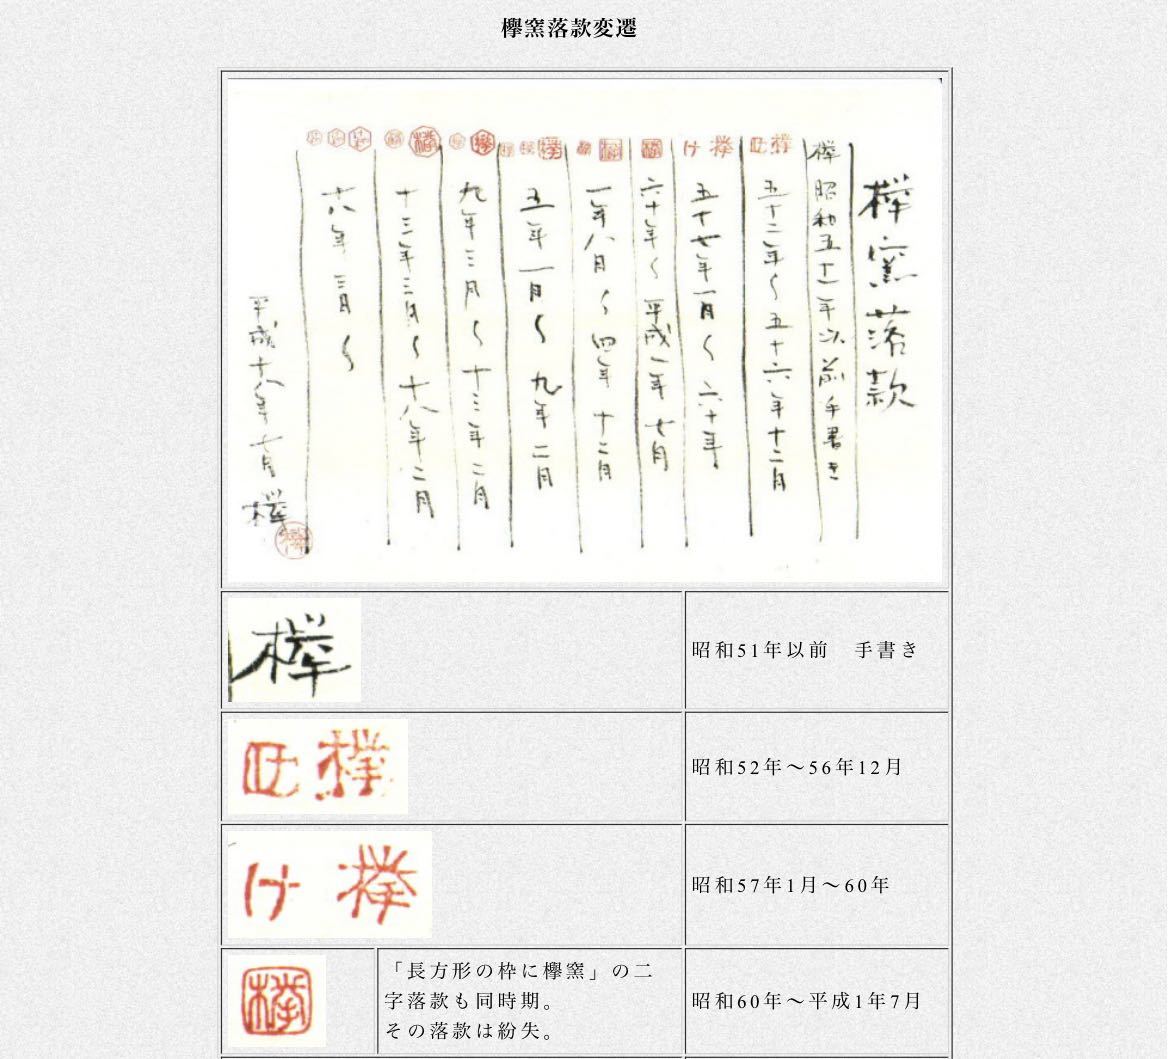 欅窯落款変遷
欅窯落款
欅 昭和五十一年以前手書き
五十二年〜五十六年十二月
け 欅
五十七年一月〜六十年
六十年〜平成一年七月
一年八月〜四年十二月
五年一月〜九年二月
九年三月〜十三年二月
十三年三月〜十八年二月
十八年三月〜
平成十八年七月 欅
欅
昭和51年以前　手書き
欅
昭和52年〜56年12月
け 欅
昭和57年1月〜60年
欅
「長方形の枠に欅窯」の二
字落款も同時期。
その落款は紛失。
昭和60年〜平成1年7月